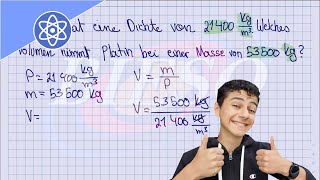 at eine Dichte von 21400 kg/m³. Welches
Volumen nimmt Platin bei einer Masse von 53 500 kg?
ρ = 21 400 kg/m³
m = 53 500 kg
V =
V = m/ρ
V = 53 500 kg / 21 400 kg/m³